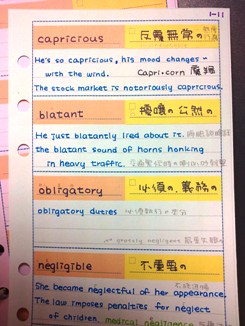 1-11
capricious 反覆無常の
He's so capricious, his mood changes
with the wind. Capricorn 魔羯
The stock market is notoriously capricious.
blatant 公然の
He just blatantly lied about it.
the blatant sound of horns honking
in heavy traffic.
obligatory 必須の、義務の
obligatory duties
grossly negligent
negligible 不重要の
She became neglectful of her appearance.
The law imposes penalties for neglect
of children. medical negligence